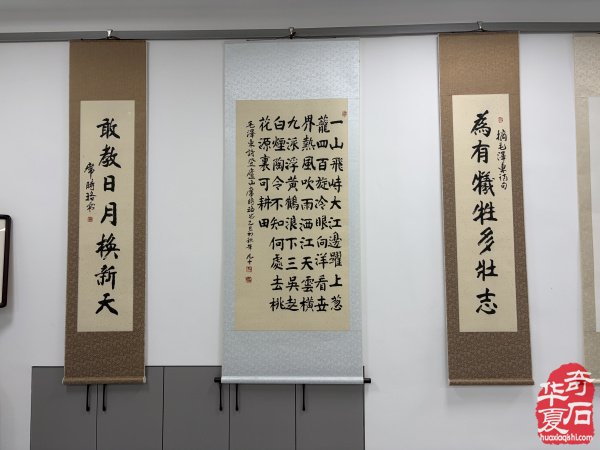 摘毛澤東詩句
為有犧牲多壯志
一山飛峙大江邊躍上葱
龍四百旋冷眼向洋看世
界熱風吹雨洒江天雲橫
九派浮黃鶴浪下三吳起
白煙陶令不知何處去桃
花源裏可耕田
毛澤東詩登廬山席時
敢教日月換新天
席時珞書
华夏奇石
huaxiaqishi.com